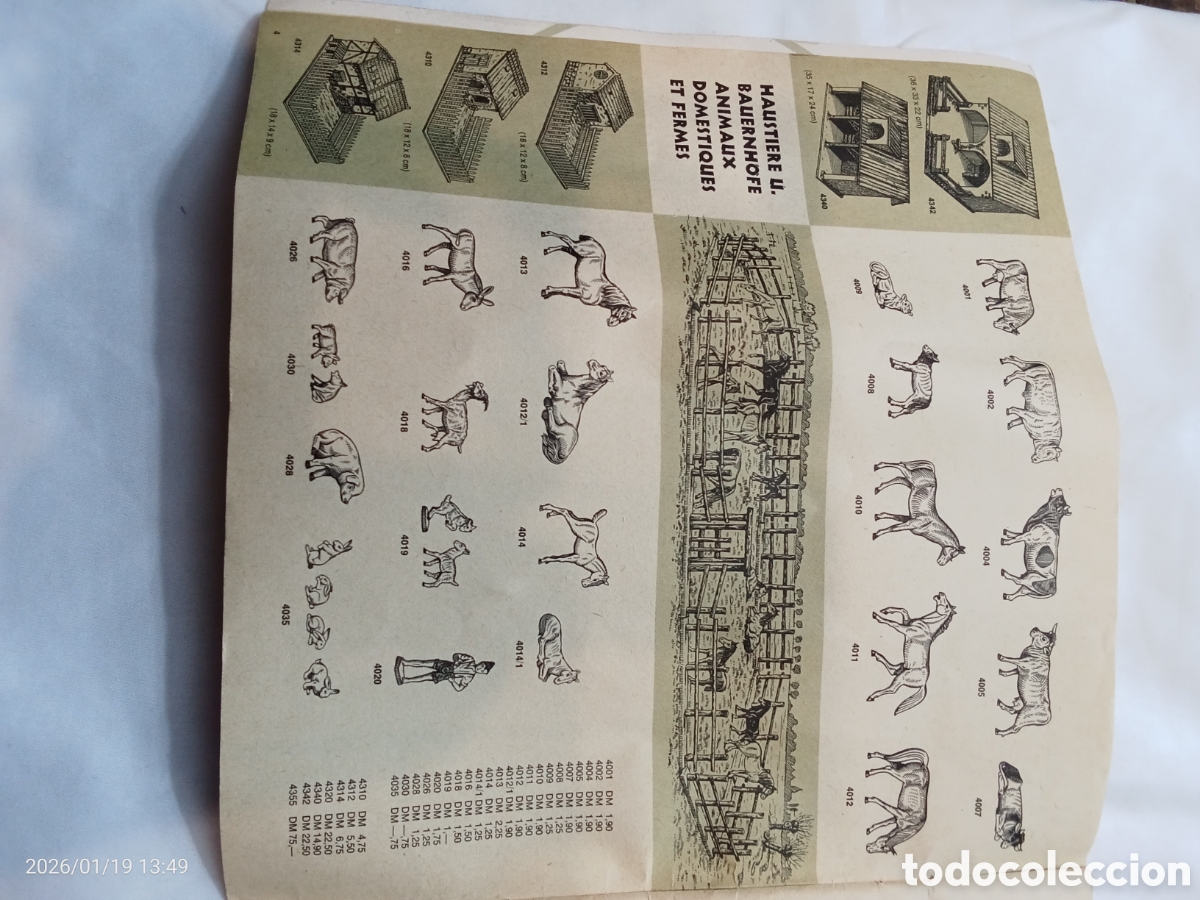 (36 x 33 x 22 cm)
4342
(35 x 17 x 24 cm)
4340
HAUSTIERE U.
BAUERNHÖFE
ANIMAUX
DOMESTIQUES
ET FERMES
4312
(18 x 12 x 8 cm)
4310
(18 x 12 x 8 cm)
4314
(18 x 14 x 9 cm)
4
4001
4002
4004
4005
4007
4009
4008
4010
4011
4012
4013
4012/1
4014
4014/1
4016
4018
4019
4020
4026
4030
4028
4035
4001 DM 1,90
4002 DM 1,90
4004 DM 1,90
4005 DM 1,90
4007 DM 1,90
4008 DM 1,25
4009 DM 1,25
4010 DM 1,90
4011 DM 1,90
4012 DM 1,90
4012/1 DM 1,90
4013 DM 2,25
4014 DM 1,25
4014/1 DM 1,25
4016 DM 1,50
4018 DM 1,50
4019 DM 1,—
4020 DM 1,75
4026 DM 1,25
4028 DM 1,25
4030 DM —,75
4035 DM —,75
4310 DM 4,75
4312 DM 5,50
4314 DM 6,75
4320 DM 22,50
4340 DM 14,90
4342 DM 22,50
4355 DM 75,—
2026/01/19 13:49
todocoleccion